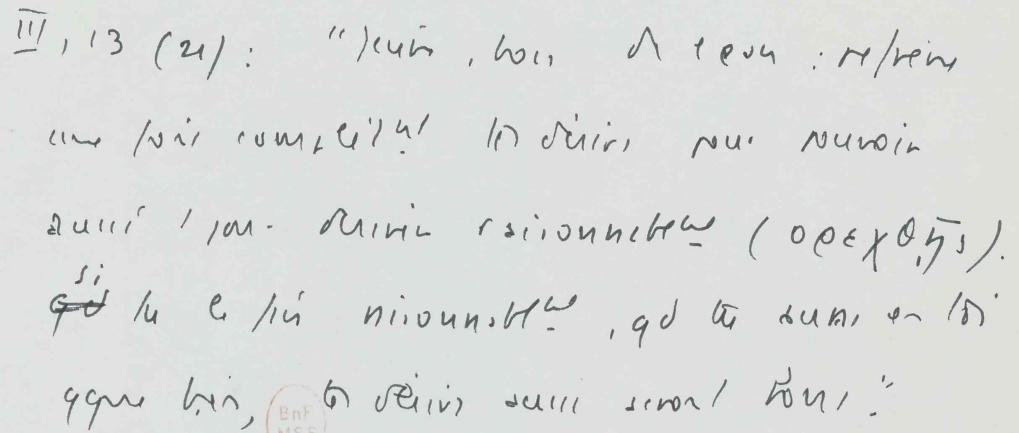 III, 13 (21) : " Jeûne, bois de l'eau : refrène
une fois complètᵗ tes désirs pour pouvoir
aussi 1 jour désirer raisonnablemᵗ (ορεχθῇς).
si tu le fais raisonnablemᵗ, qd tu auras en toi
qque bien, tes désirs aussi seront bons. "
BnF
MSS